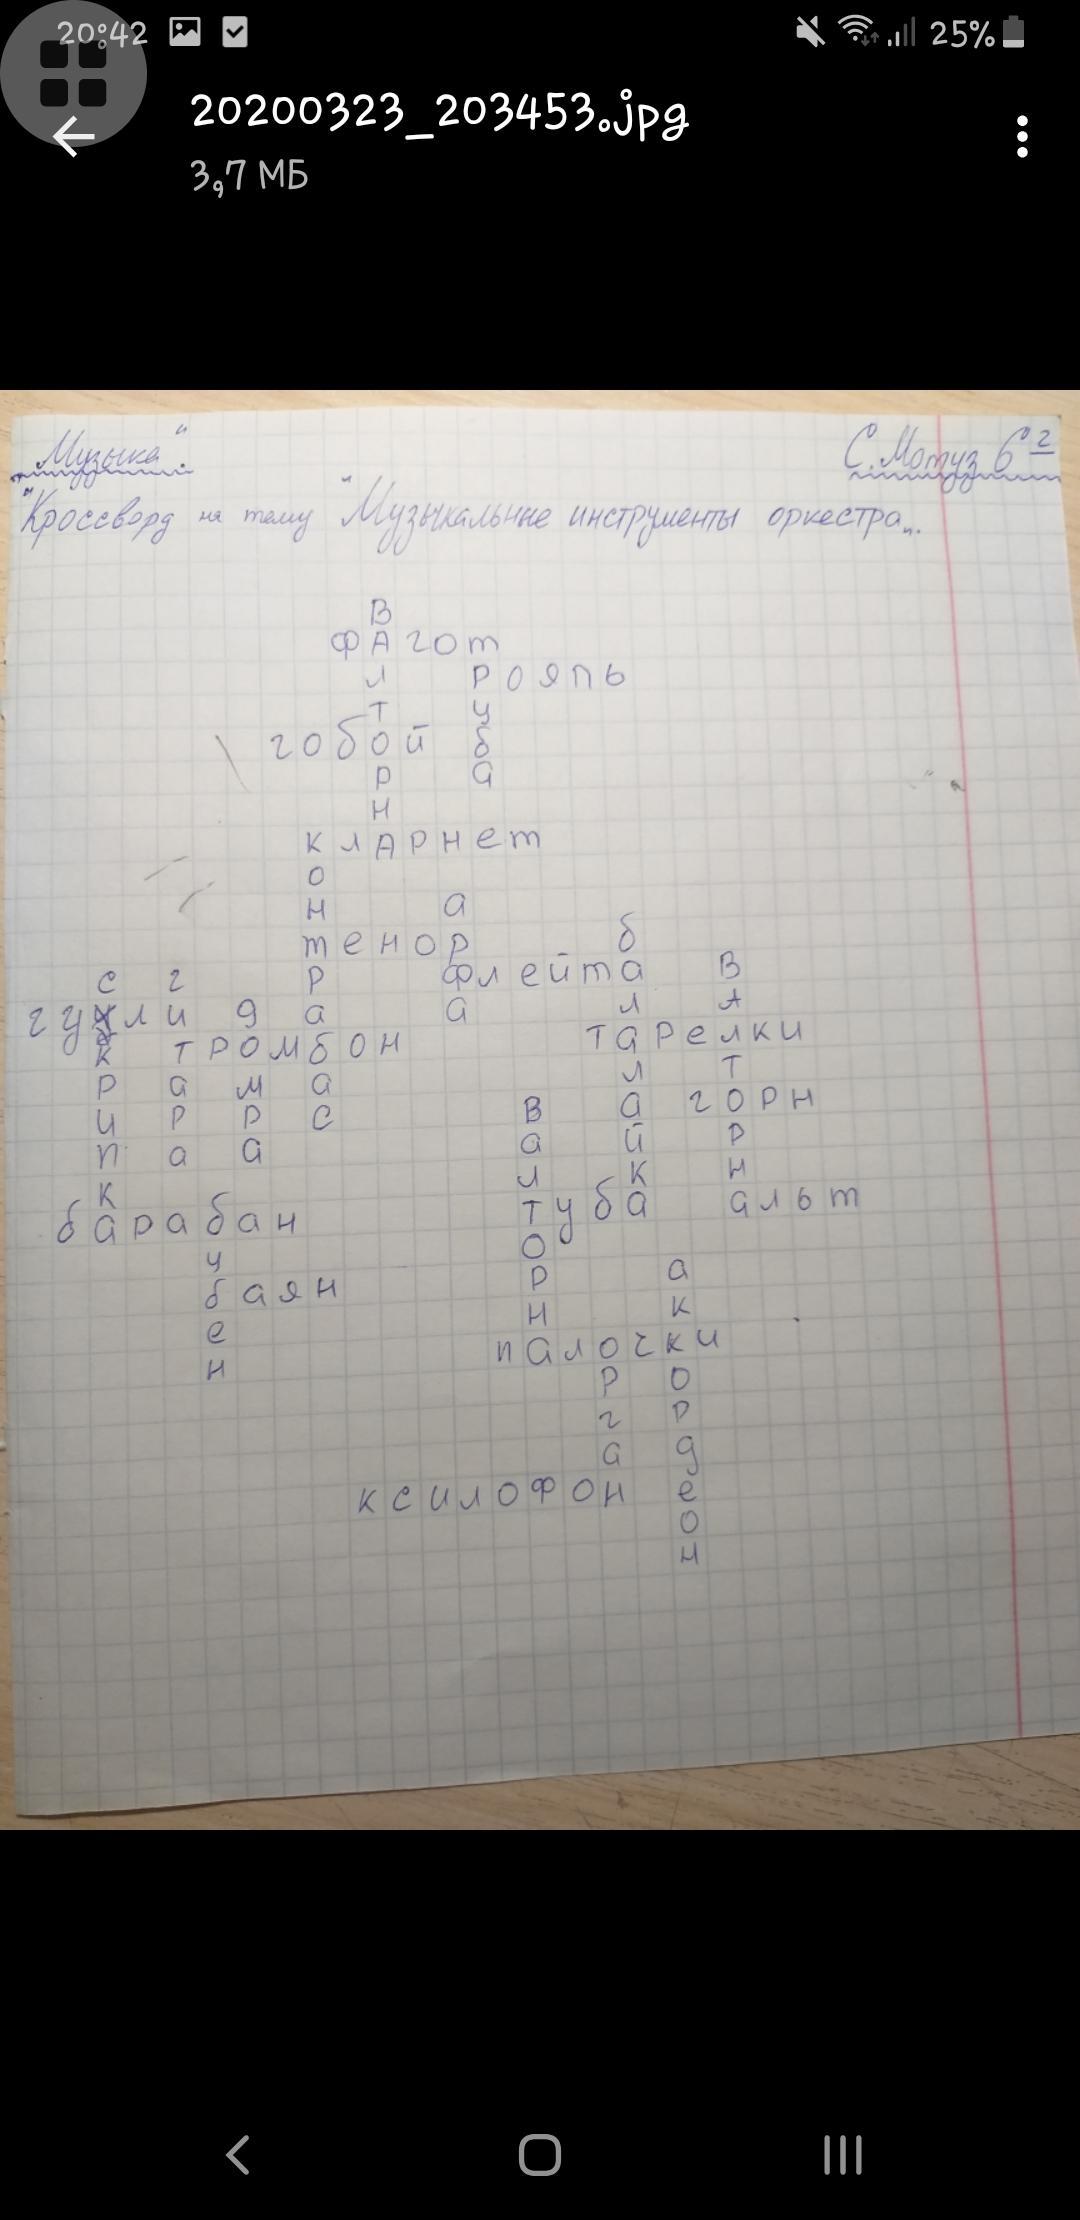 20:42 25%
20200323_203453.jpg
3,7 МБ
"Музыка".
С. Мотуз 6г
"Кроссворд на тему "Музыкальные инструменты оркестра".
В
ФАгот
л Рояль
Т у
гобой б
Р а
Н
кларнет
о
н а
тенор б
с г р флейта В
гусли д а а л А
к тромбон тарелки
р а м а л Т
и р р с В а горн
п а а а й Р
к л к Н
барабан Туба альт
у О
баян Р а
е Н к
н палочки
р о
г р
а д
ксилофон е
о
н